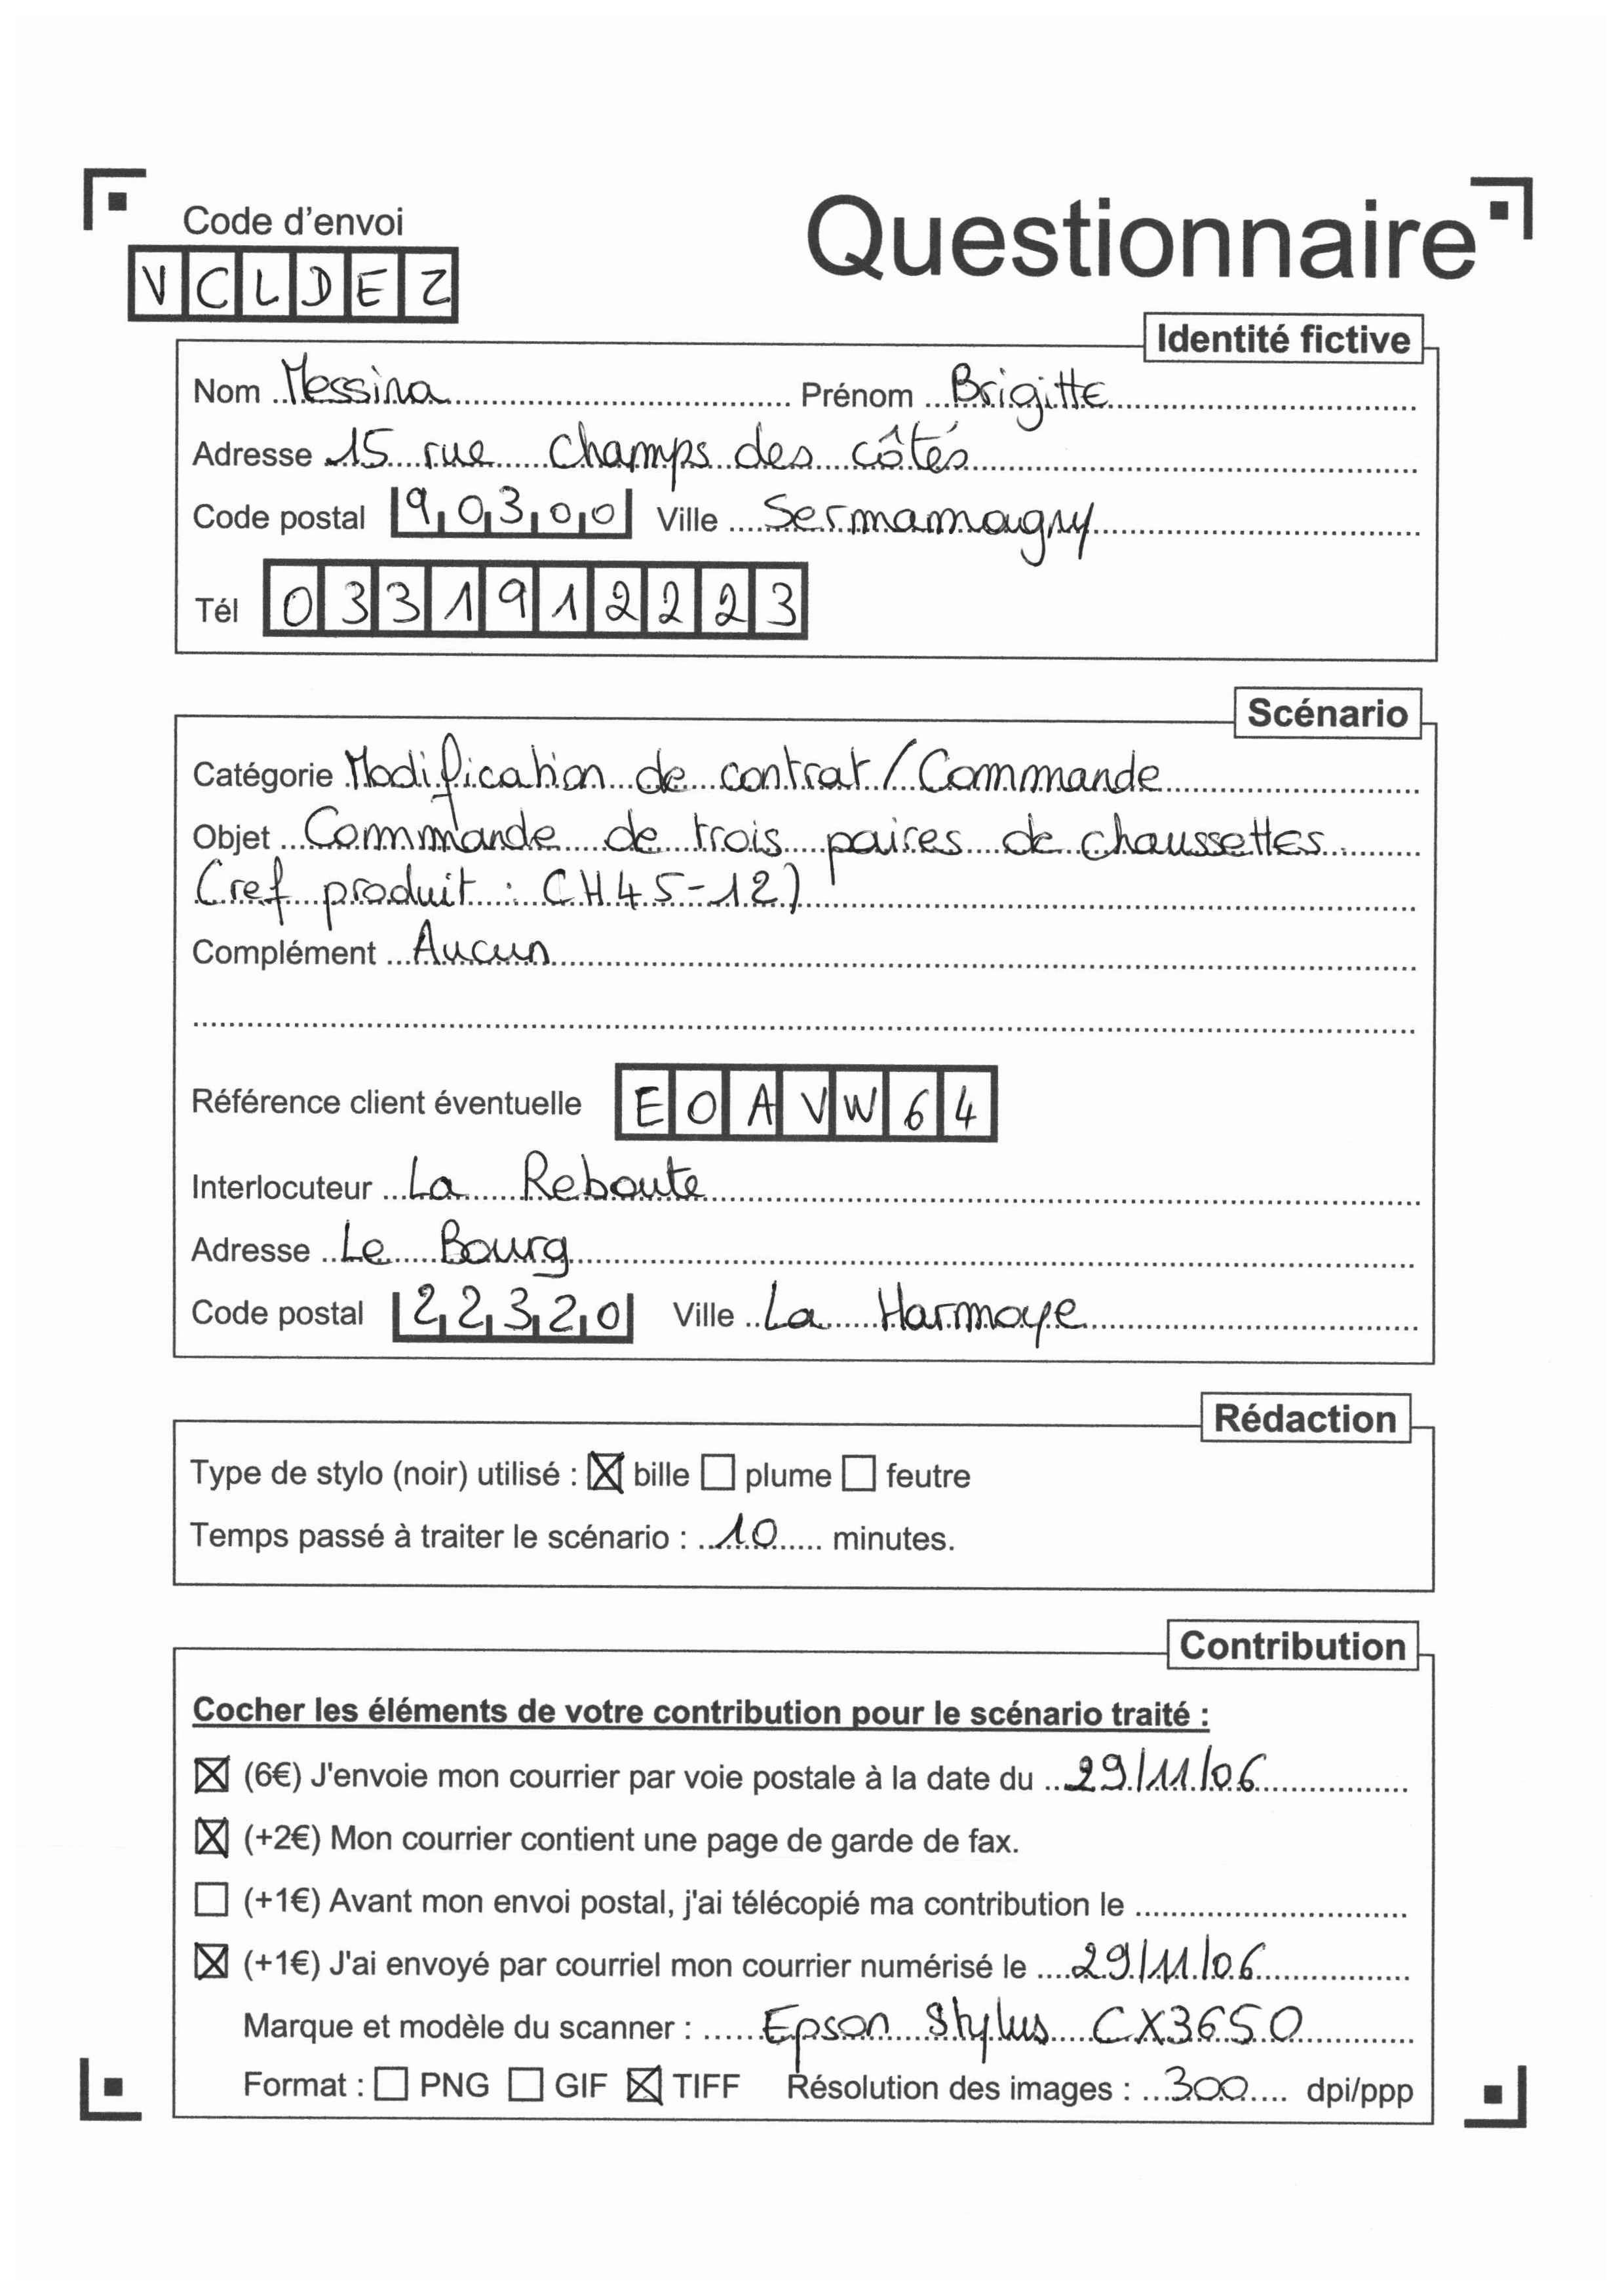 Code d'envoi
VCLDEZ
Questionnaire
Identité fictive
Nom Messina Prénom Brigitte
Adresse 15 rue champs des côtés
Code postal 90300 Ville Sermamagny
Tél 0331912223
Scénario
Catégorie Modification de contrat / Commande
Objet Commande de trois paires de chaussettes
(ref produit : CH45-12)
Complément Aucun
Référence client éventuelle EOAVW64
Interlocuteur La Reboute
Adresse Le Bourg
Code postal 22320 Ville La Harmoye
Rédaction
Type de stylo (noir) utilisé : ☒ bille ☐ plume ☐ feutre
Temps passé à traiter le scénario : 10 minutes.
Contribution
Cocher les éléments de votre contribution pour le scénario traité :
☒ (6€) J'envoie mon courrier par voie postale à la date du 29/11/06
☒ (+2€) Mon courrier contient une page de garde de fax.
☐ (+1€) Avant mon envoi postal, j'ai télécopié ma contribution le
☒ (+1€) J'ai envoyé par courriel mon courrier numérisé le 29/11/06
Marque et modèle du scanner : Epson Stylus CX3650
Format : ☐ PNG ☐ GIF ☒ TIFF Résolution des images : 300 dpi/ppp